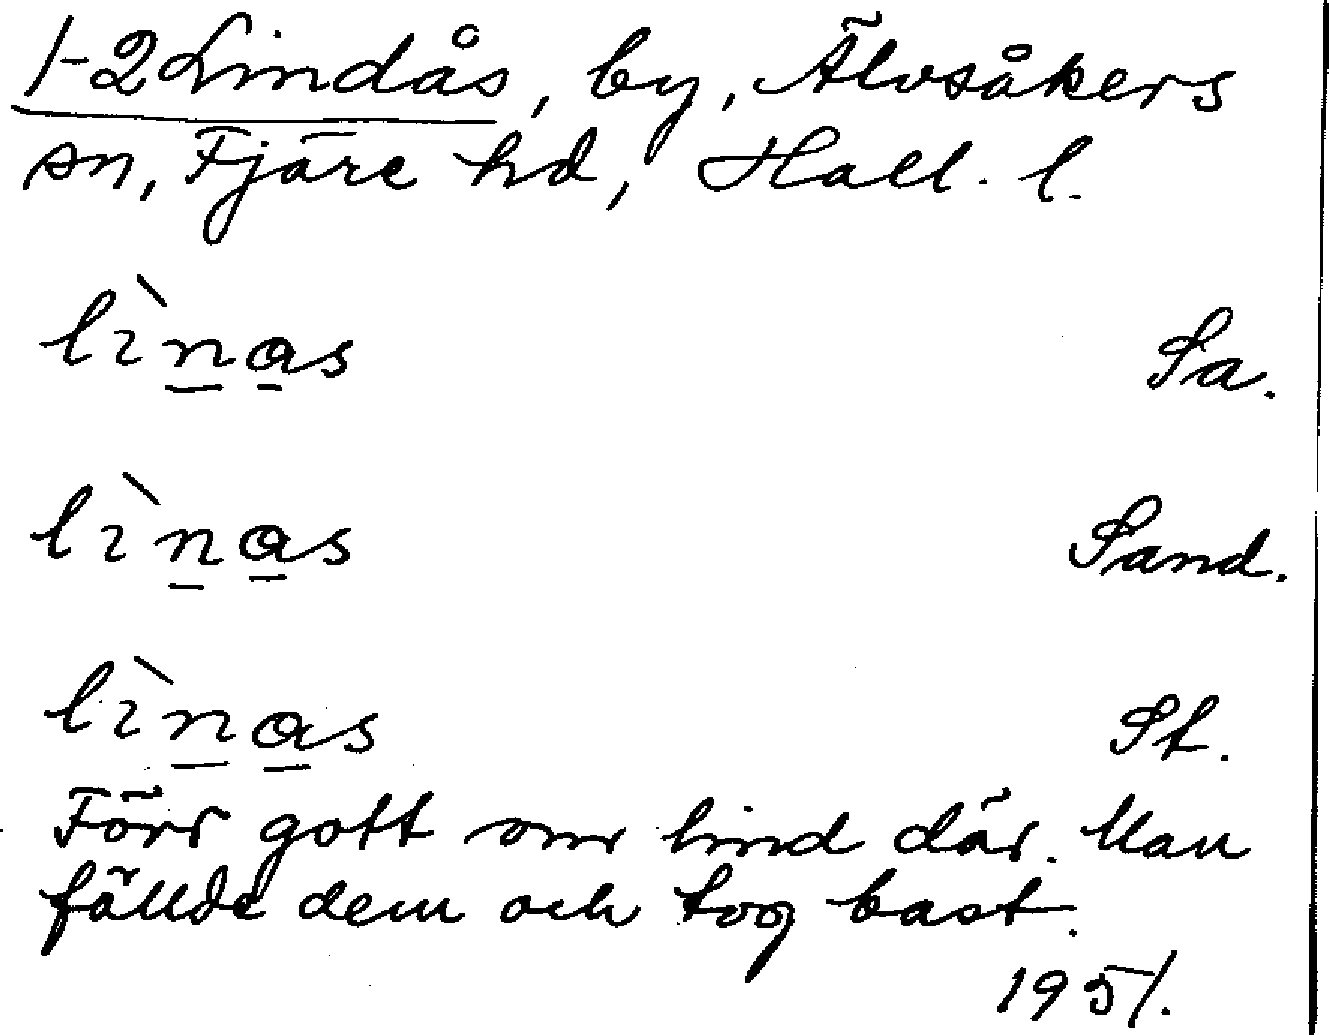 1-2 Lindås, by, Älvsåkers
sn, Fjäre hd, Hall. l.
lìnas Sa.
lìnas Sand.
lìnas St.
Förr gott om lind där. Man
fällde dem och tog bast.
1951.